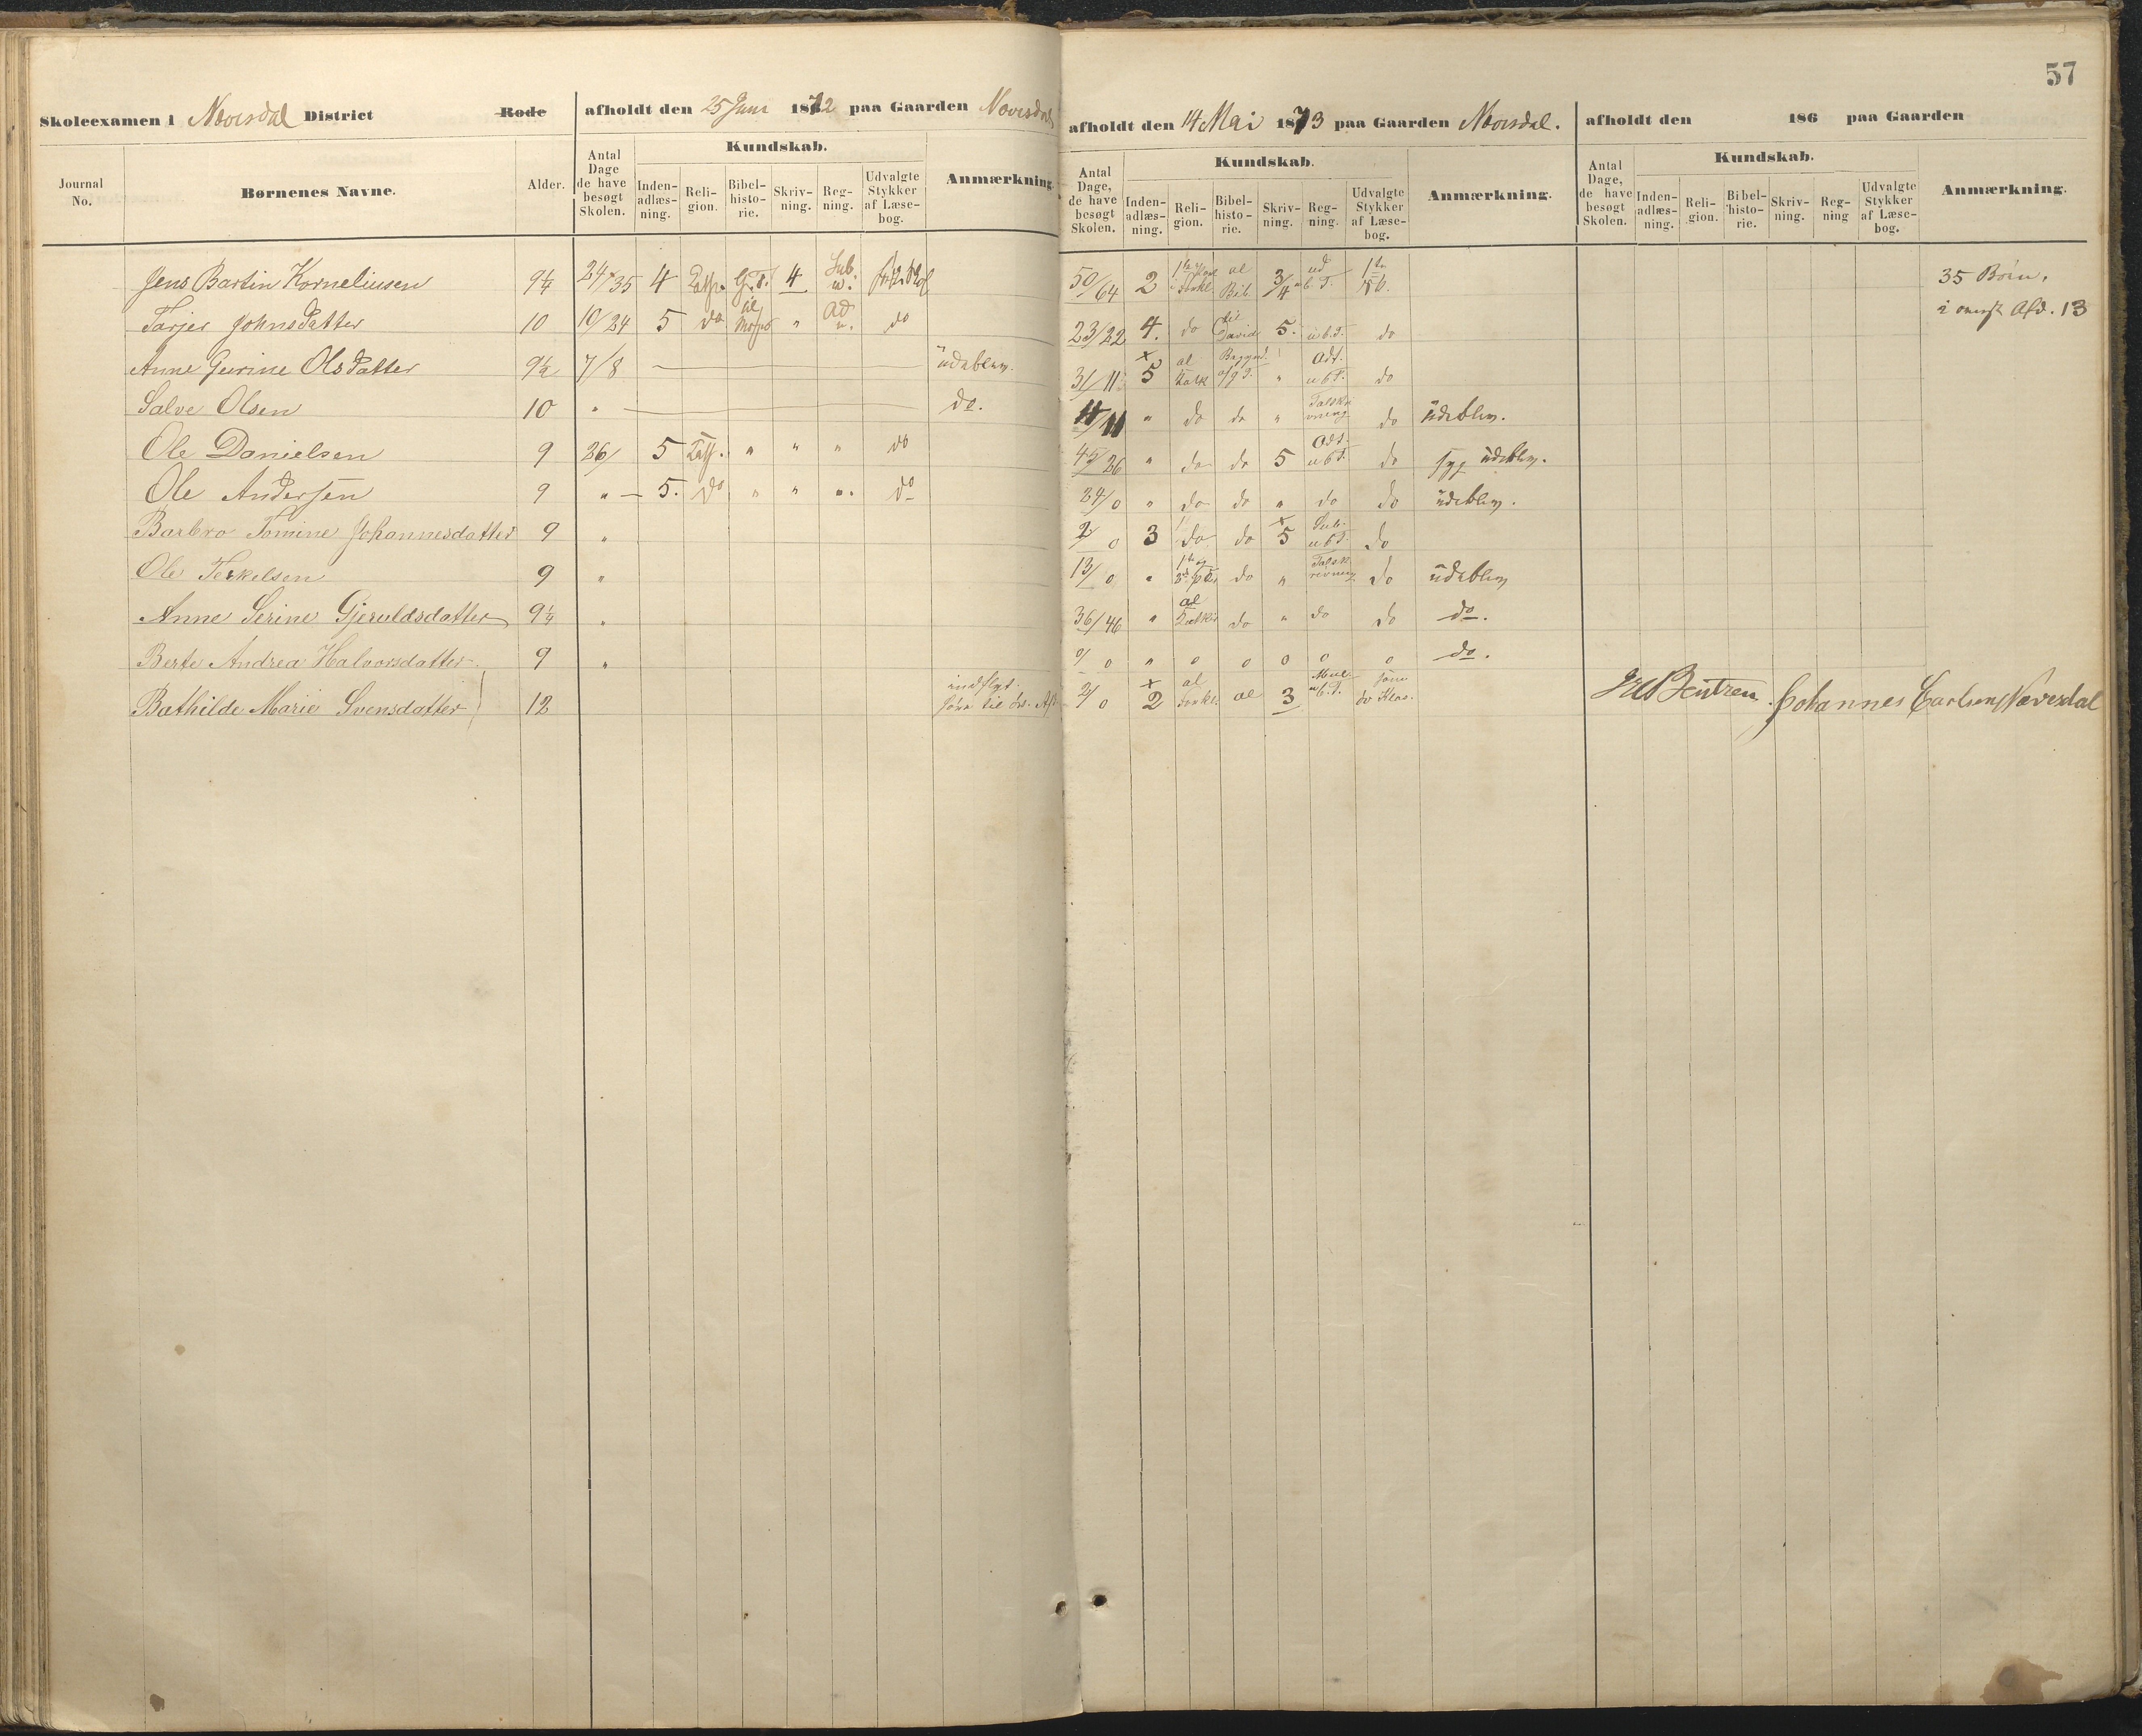 57
Skoleexamen i Næversdal District Rode afholdt den 25 Juni 1872 paa Gaarden Næversdal
afholdt den 14 Mai 1873 paa Gaarden Næversdal.
afholdt den 186 paa Gaarden
Journal No. Børnenes Navne. Alder. Antal Dage de have besøgt Skolen. Kundskab. Inden-adlæs-ning. Reli-gion. Bibel-histo-rie. Skriv-ning. Reg-ning. Udvalgte Stykker af Læse-bog. Anmærkning.
Antal Dage, de have besøgt Skolen. Kundskab. Inden-adlæs-ning. Reli-gion. Bibel-histo-rie. Skriv-ning. Reg-ning. Udvalgte Stykker af Læse-bog. Anmærkning.
Antal Dage, de have besøgt Skolen. Kundskab. Inden-adlæs-ning. Reli-gion. Bibel-histo-rie. Skriv-ning. Reg-ning Udvalgte Stykker af Læse-bog. Anmærkning.
Jens Bartin Korneliusen 9¼ 24/35 4 G.T. 4 Sub. 50/64 2 al Bib. 3/4 35 Børn,
Tarjer Johnsdatter 10 10/24 5 do til " Ad do 23/22 4. do til David 5. u b.d. do i øverst Afd. 13
Anne Gurine Olsdatter 9½ 7/8 udeblev. 31/11 x 5 al " Adt. u b d. do
Salve Olsen 10 " do. 11/11 " do do " Talskrivning do udeblev.
Ole Danielsen 9 26/ 5 " " " do 45/26 " do do 5 Adt. u b d. do syg udeblev.
Ole Andersen 9 " 5. do " " ". do 24/0 " do do " do do udeblev.
Barbro Tomine Johannesdatter 9 " 2/0 3 do do x 5 Sub. u b d. do
Ole Terkelsen 9 " 13/0 " do " Talskrivning do udeblev
Anne Serine Gjeruldsdatter 9¼ " 36/46 " al do " do do do.
Berte Andrea Halvorsdatter. 9 " 0/0 " o o o o o do.
Bathilde Marie Svensdatter 12 indflyt. 2/0 x 2 al Forkl. al 3 Mul. u b.d. Bentzen. Johannes Carlsen Næversdal